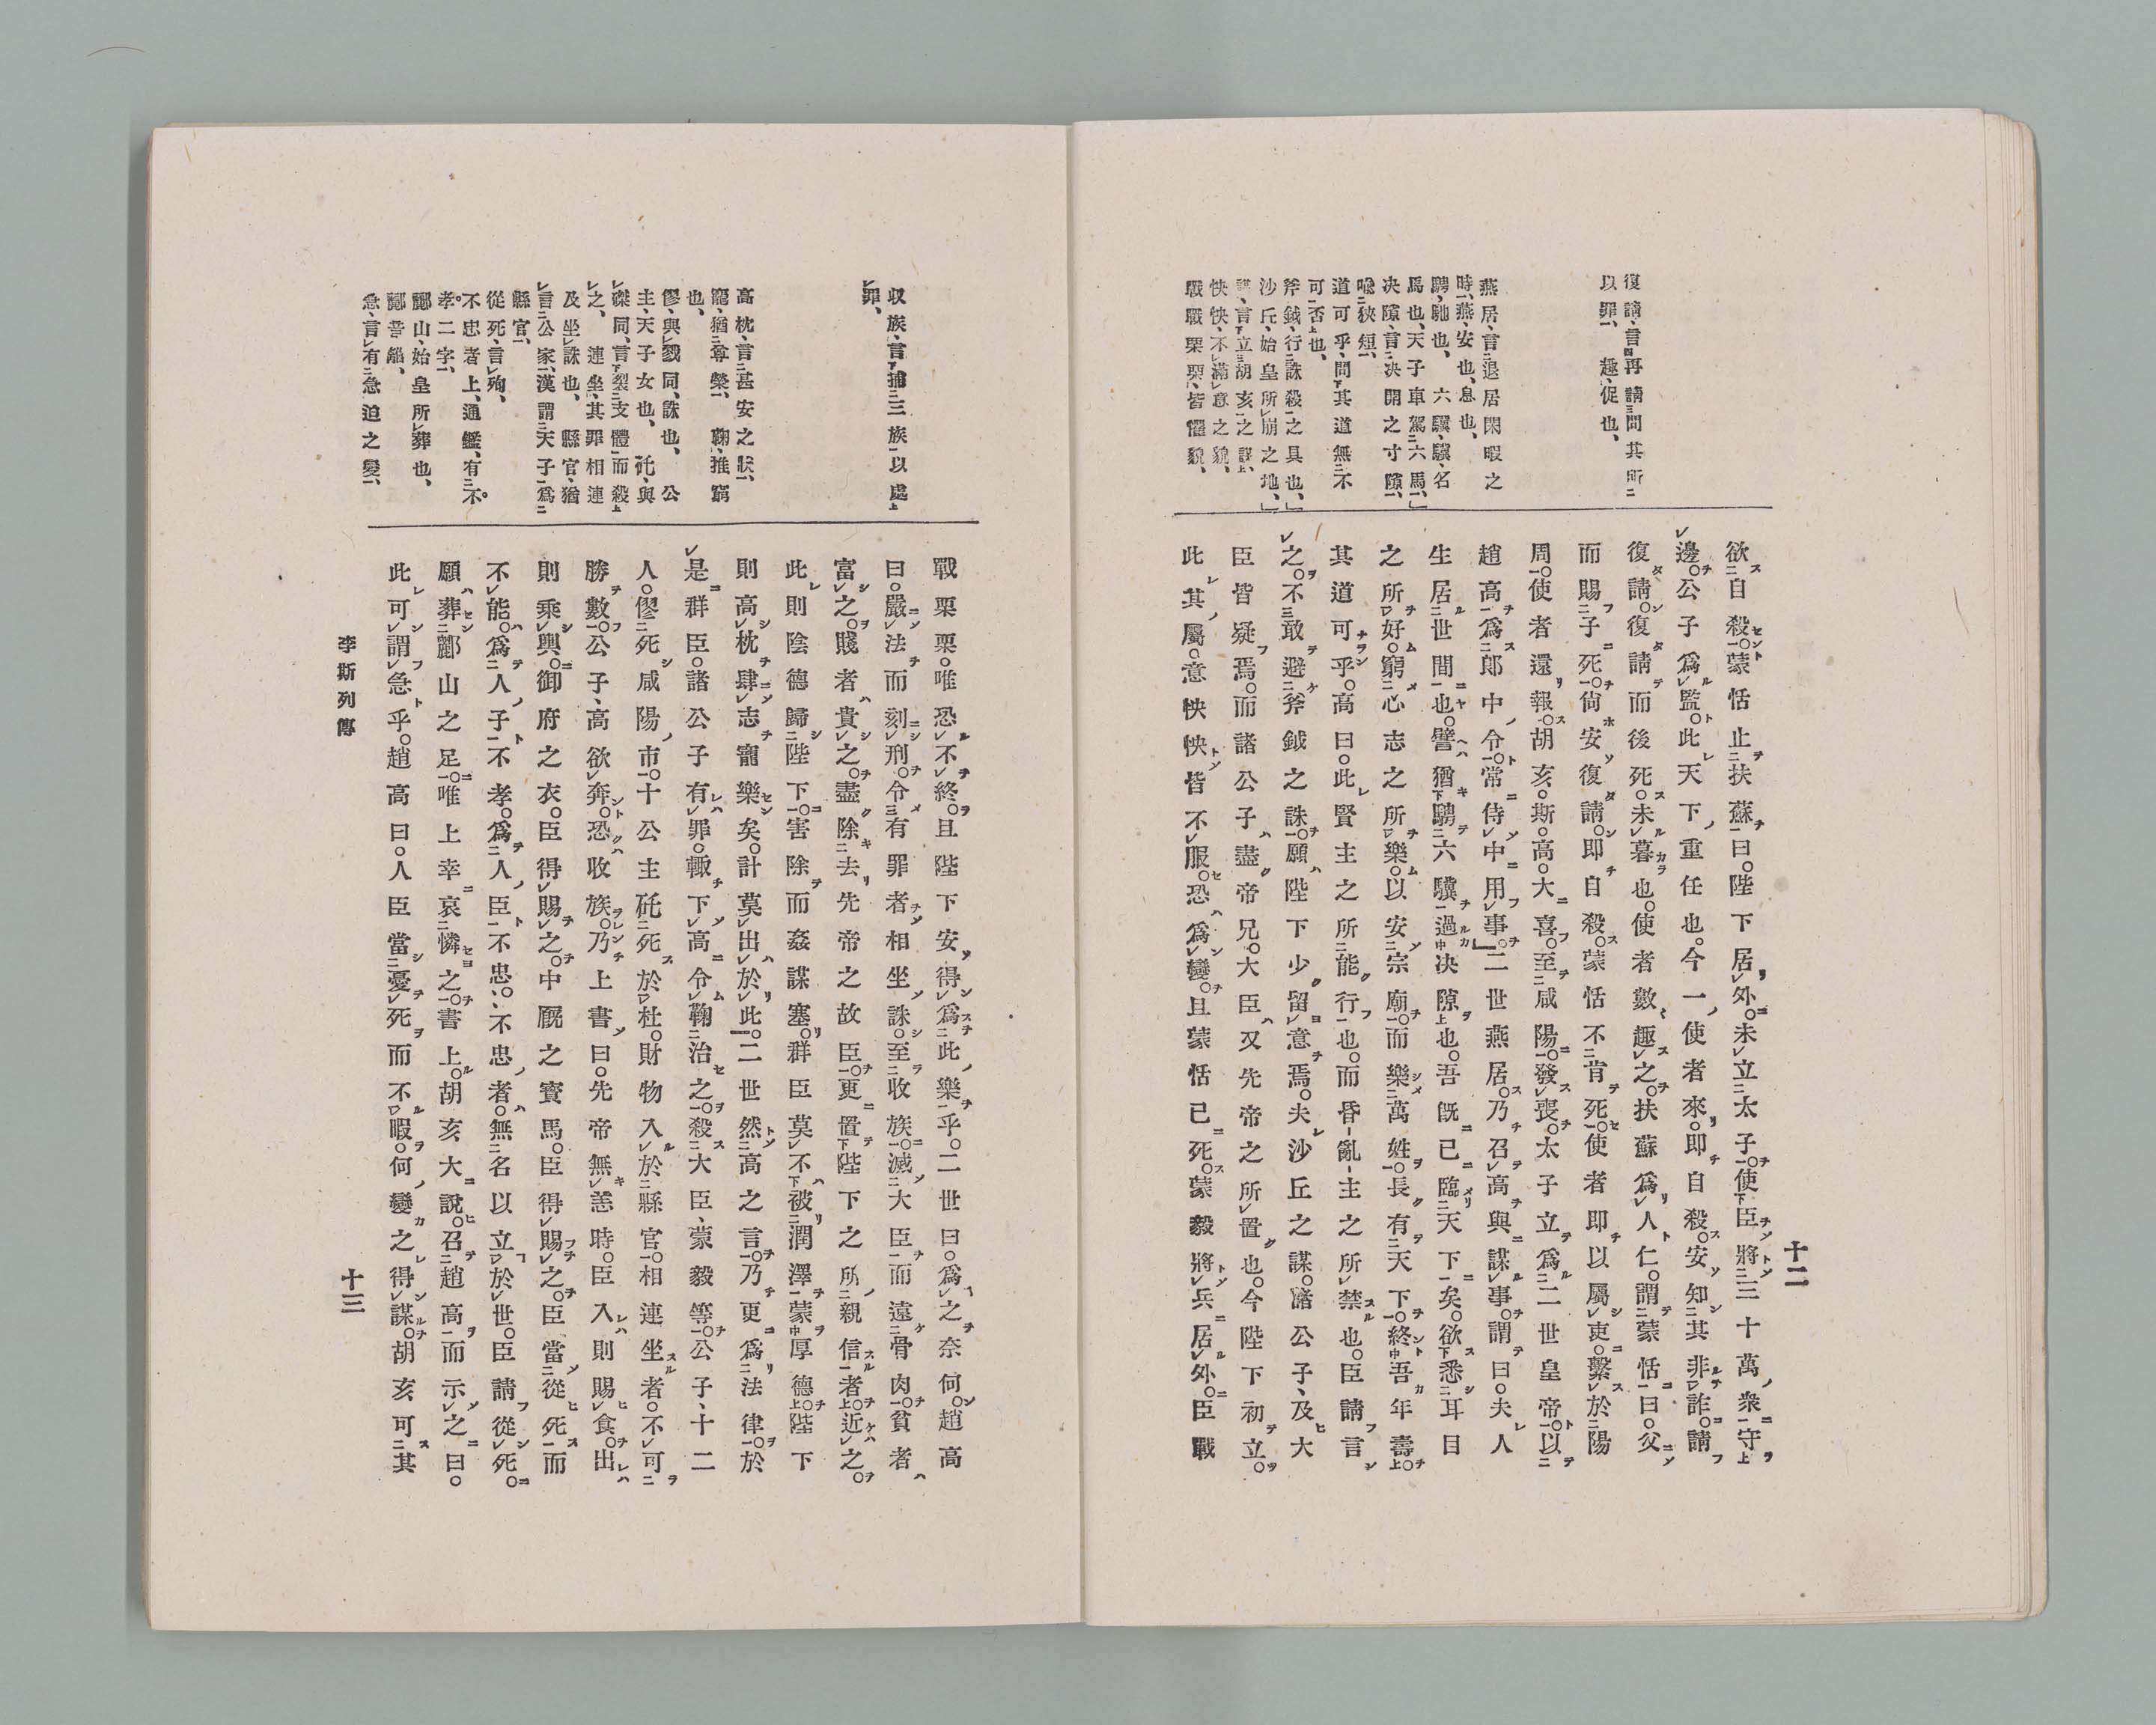 復請、言再請問其所
以罪、　趣、促也、
燕居、言退居閑暇之
時、燕、安也、息也、
騁、馳也、　六驥、驥、名
馬也、天子車駕六馬、」
决隙、言决開之寸隙、
喩狹短、
道可乎、問其道無不
可否也、
斧鉞、行誅殺之具也、」
沙丘、始皇所崩之地、」
謀、言立胡亥之謀、
怏怏、不滿意之貌、
戰戰栗栗、皆懼貌、
欲自殺。蒙恬止扶蘇曰。陛下居外。未立太子。使臣將三十萬衆守
邊。公子爲監。此天下重任也。今一使者來。即自殺。安知其非詐。請
復請。復請而後死。未暮也。使者數〻趣之。扶蘇爲人仁。謂蒙恬曰。父
而賜子死。尙安復請。即自殺。蒙恬不肯死。使者即以屬吏。繫於陽
周。使者還報。胡亥。斯。高。大喜。至咸陽。發喪。太子立爲二世皇帝。以
趙高爲郎中令。常侍中用事。」二世燕居。乃召高與謀事。謂曰。夫人
生居世間也。譬猶騁六驥過决隙也。吾既已臨天下矣。欲悉耳目
之所好。窮心志之所樂。以安宗廟。而樂萬姓。長有天下。終吾年壽。
其道可乎。高曰。此賢主之所能行也。而昏亂主之所禁也。臣請言
之。不敢避斧鉞之誅。願陛下少留意焉。夫沙丘之謀。諸公子、及大
臣皆疑焉。而諸公子盡帝兄。大臣又先帝之所置也。今陛下初立。
此其屬。意怏怏皆不服。恐爲變。且蒙恬已死。蒙毅將兵居外。臣戰
十二
収族、言捕三族以處
罪、
高枕、言甚安之狀、
寵、猶尊榮、　鞠、推窮
也、
僇、與戮同、誅也、　公
主、天子女也、　矺、與
磔同、言裂支體而殺
之、　連坐、其罪相連
及坐誅也、　縣官、猶
言公家、漢謂天子爲
縣官、
從死、言殉、
不忠者上、通鑑、有不
孝二字、
酈山、始皇所葬也、
酈音
急、言有急迫之變、
戰栗栗。唯恐不終。且陛下安得爲此樂乎。二世曰。爲之奈何。趙高
曰。嚴法而刻刑。令有罪者相坐誅。至收族。滅大臣而遠骨肉。貧者
富之。賤者貴之。盡除去先帝之故臣。更置陛下之所親信者近之。
此則陰德歸陛下。害除而姦謀塞。群臣莫不被潤澤蒙厚德。陛下
則高枕肆志寵樂矣。計莫出於此。二世然高之言。乃更爲法律。於
是群臣。諸公子有罪。輙下高令鞠治之。殺大臣、蒙毅等。公子、十二
人。僇死咸陽市。十公主矺死於杜。財物入於縣官。相連坐者。不可
勝數。公子、高欲奔。恐收族。乃上書曰。先帝無恙時。臣入則賜食。出
則乘輿。御府之衣。臣得賜之。中厩之寶馬。臣得賜之。臣當從死而
不能。爲人子不孝。爲人臣不忠。不忠者。無名以立於世。臣請從死。
願葬酈山之足。唯上幸哀憐之。書上。胡亥大說。召趙高而示之曰。
此可謂急乎。趙高曰。人臣當憂死而不暇。何變之得謀。胡亥可其
李斯列傳
十三